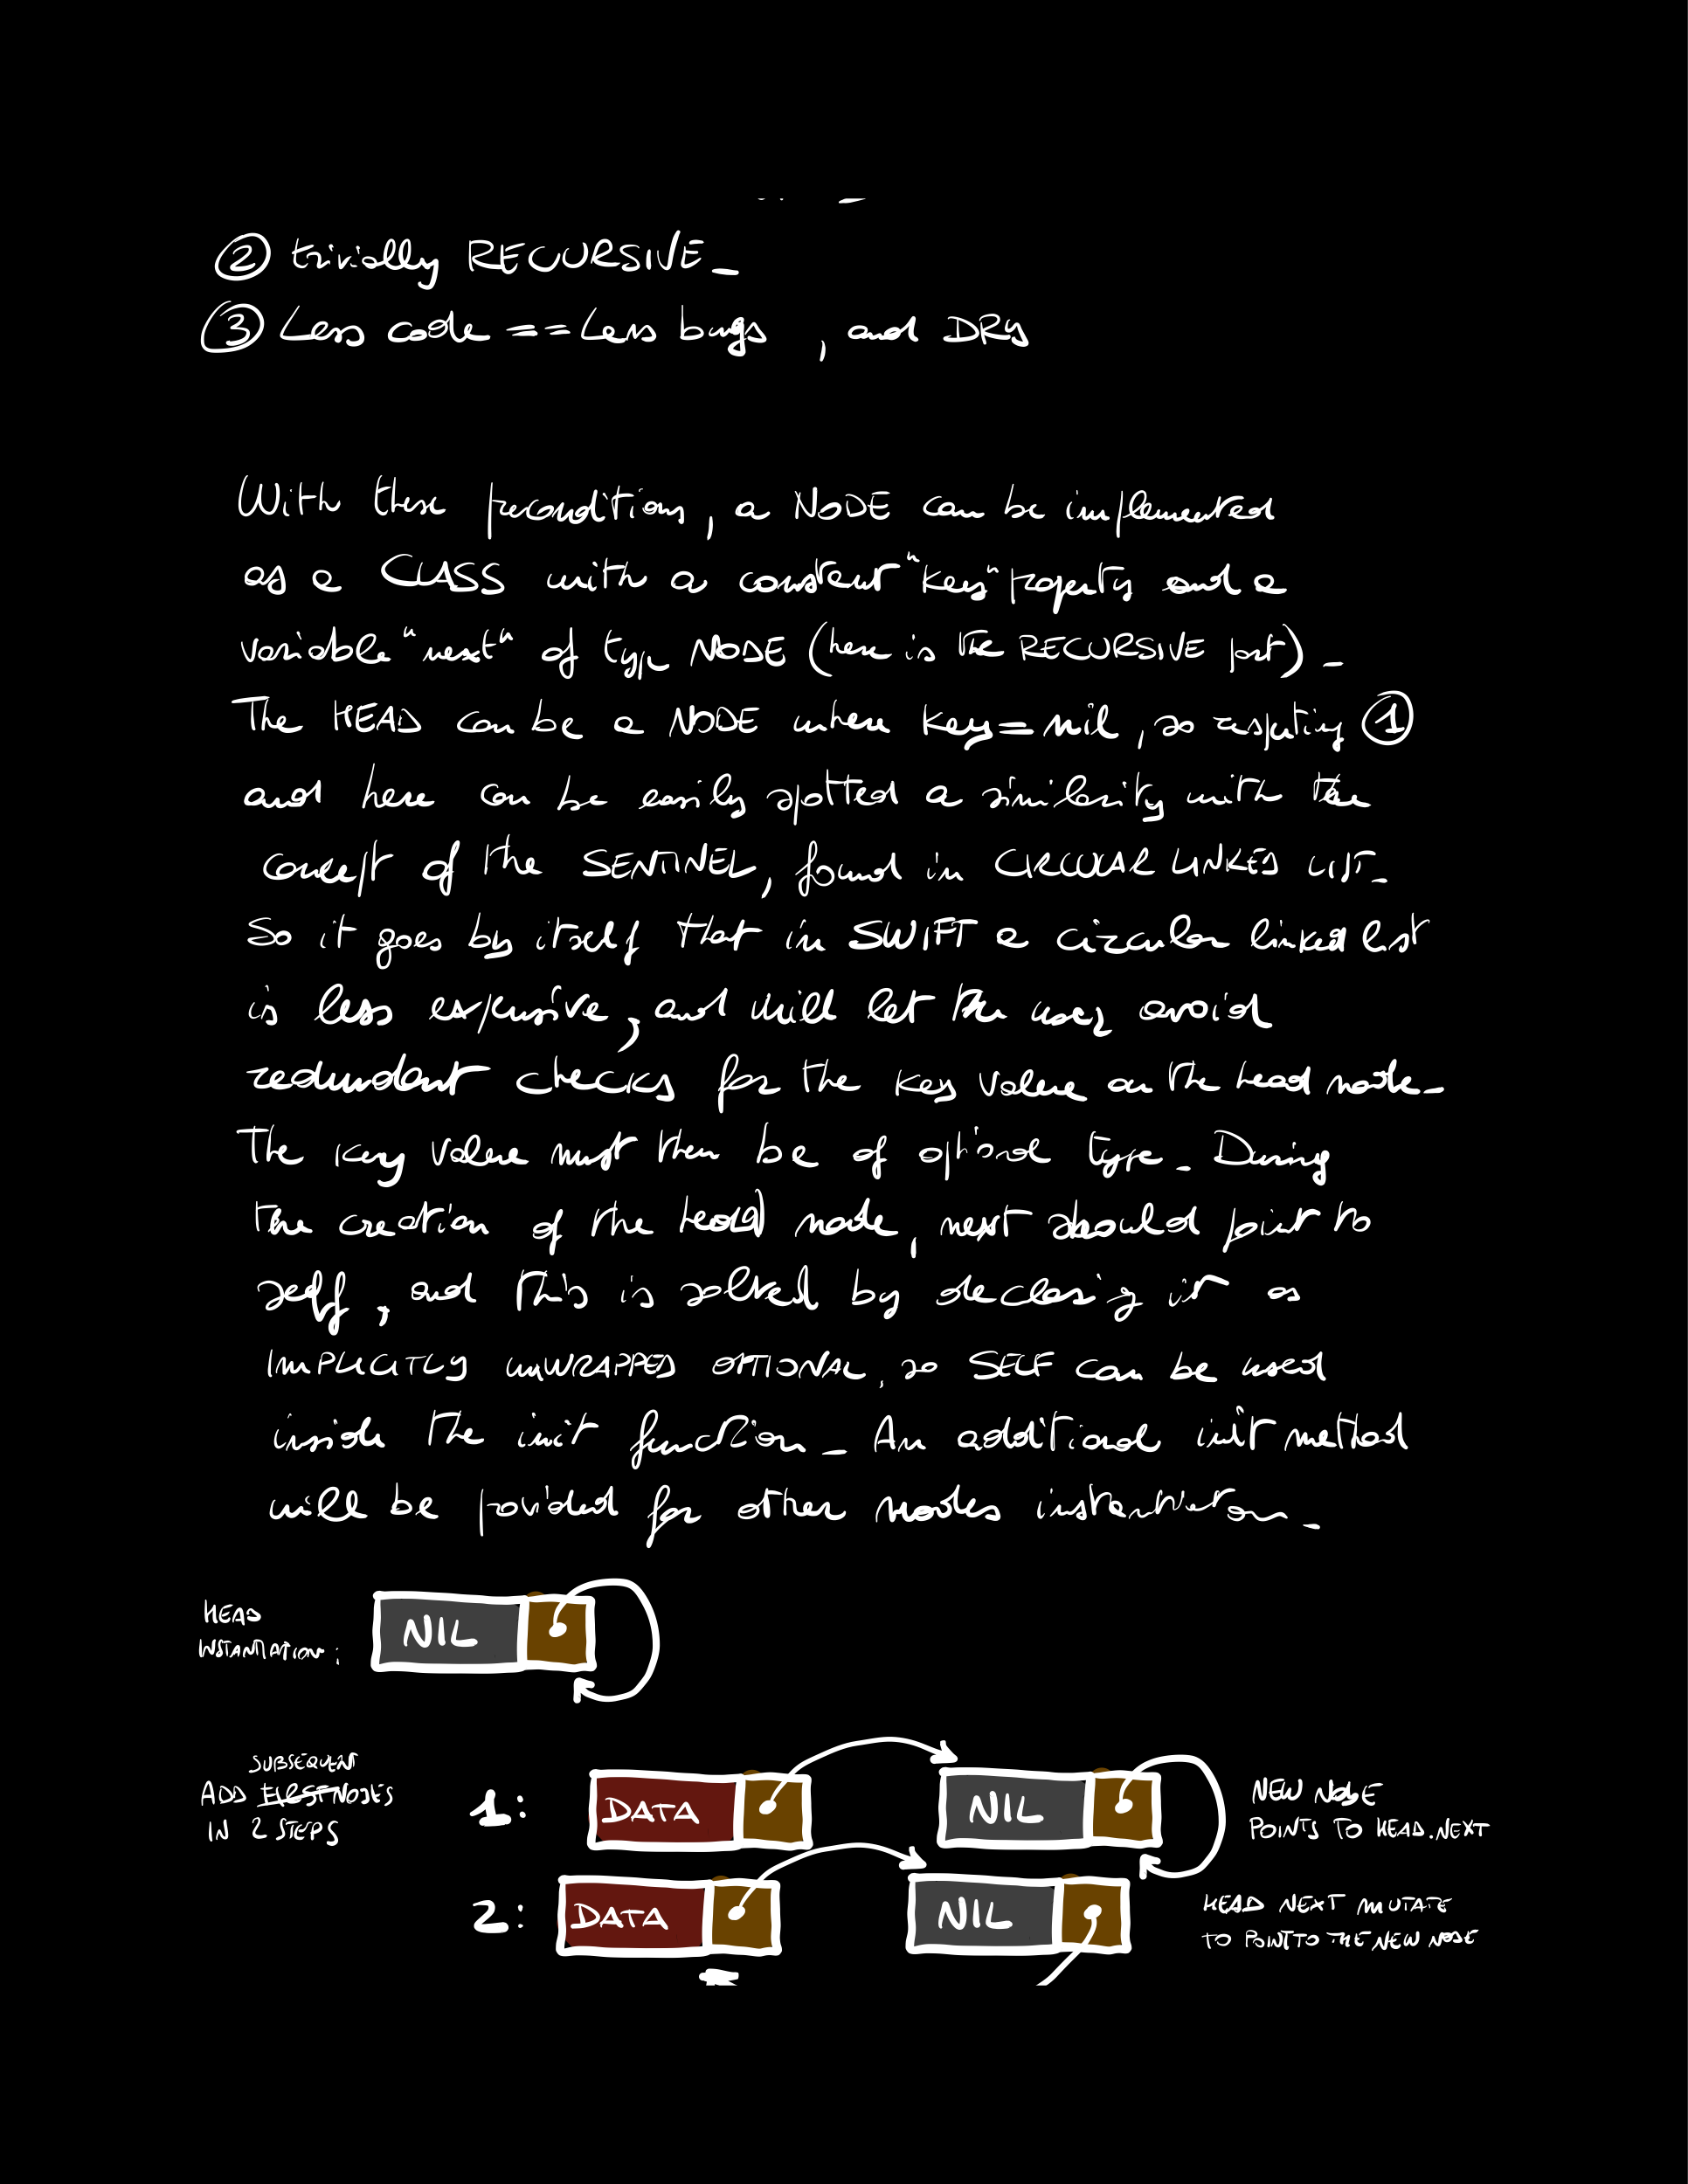 ② trivially RECURSIVE_
③ Less code == Less bugs , and DRY
With these preconditions, a NODE can be implemented
as a CLASS with a constant "key" property and a
variable "next" of type NODE (here is the RECURSIVE part) _
The HEAD can be a NODE where key=nil, so respecting ①
and here can be easily spotted a similarity with the
concept of the SENTINEL, found in CIRCULAR LINKED LIST_
So it goes by itself that in SWIFT a circular linked list
is less expensive, and will let the user avoid
redundant checks for the key value on the head node_
The key value must then be of optional type_ During
the creation of the head node, next should point to
self, and this is solved by declaring it as
IMPLICITLY UNWRAPPED OPTIONAL, so SELF can be used
inside the init function_ An additional init method
will be provided for other nodes instantiation_
HEAD
INSTANTIATION:
NIL
SUBSEQUENT
ADD NODES
IN 2 STEPS
1:
DATA
NIL
NEW NODE
POINTS TO HEAD.NEXT
2:
DATA
NIL
HEAD NEXT MUTATE
TO POINT TO THE NEW NODE